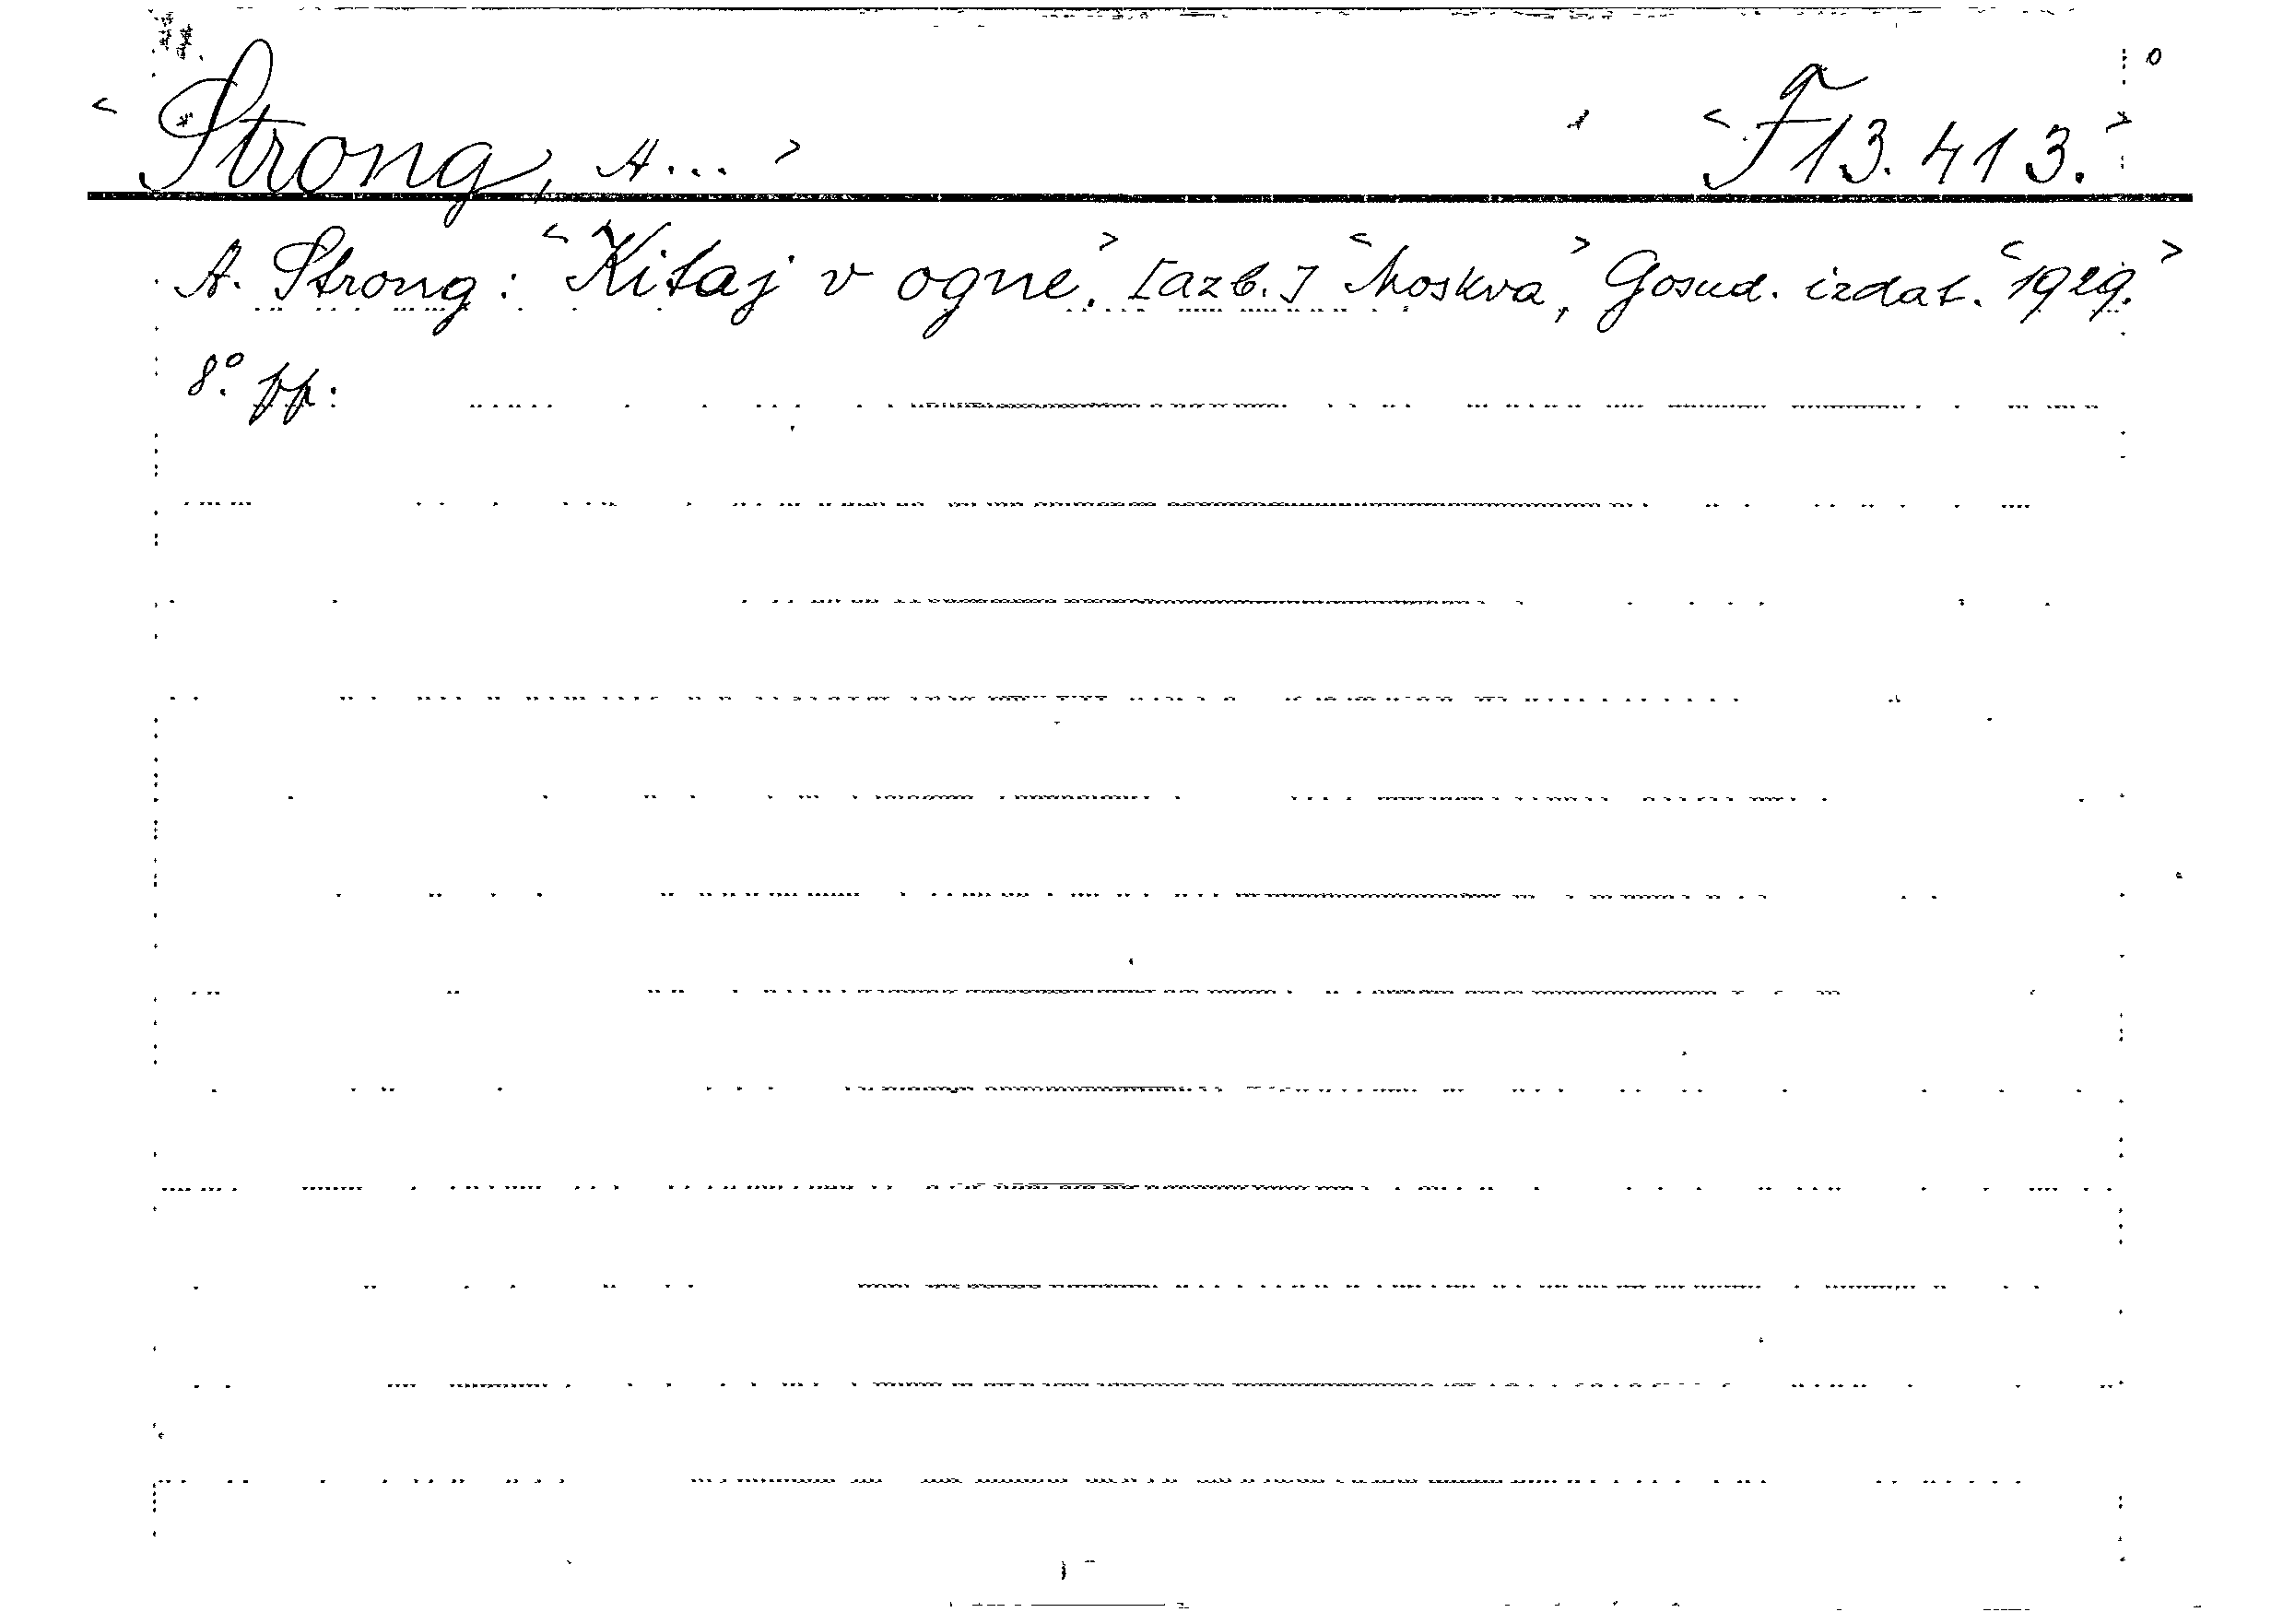 <Strong, A...> <F13.413.>
A. Strong: <Kitaj v ogne.> [azb.] <Moskva,> Gosud. izdat. <1929.>
8°. pp: